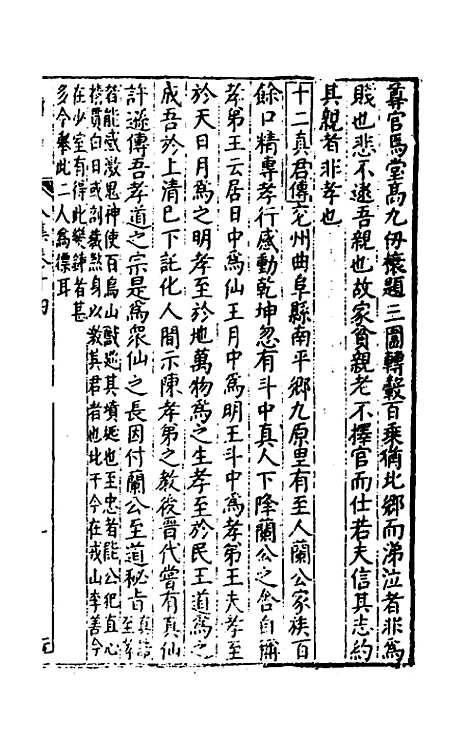 尊官焉堂高九仞榱題三圍轉轂百乘猶北鄉而涕泣者非為
賤也悲不逮吾親也故家貧親老不擇官而仕若夫信其志約
其親者非孝也
十二真君傳兗州曲阜縣南平鄉九原里有至人蘭公家族百
餘口精專孝行感動乾坤忽有斗中真人下降蘭公之舍自稱
孝弟王云居日中為仙王月中為明王斗中為孝弟王夫孝至
於天日月為之明孝至於地萬物為之生孝至於民王道為之
成吾於上清已下託化人間示陳孝弟之教後晉代嘗有真仙
許遜傳吾孝道之宗是為眾仙之長因付蘭公至道秘旨真誥至孝
者能感激鬼神使百鳥山獸巡其墳埏也至忠者能公犯直心
精貫白日或剖藏煞身以激其君者也比干今在戎山李善今
在少室有得此變鍊者甚
多今舉此二人為標耳